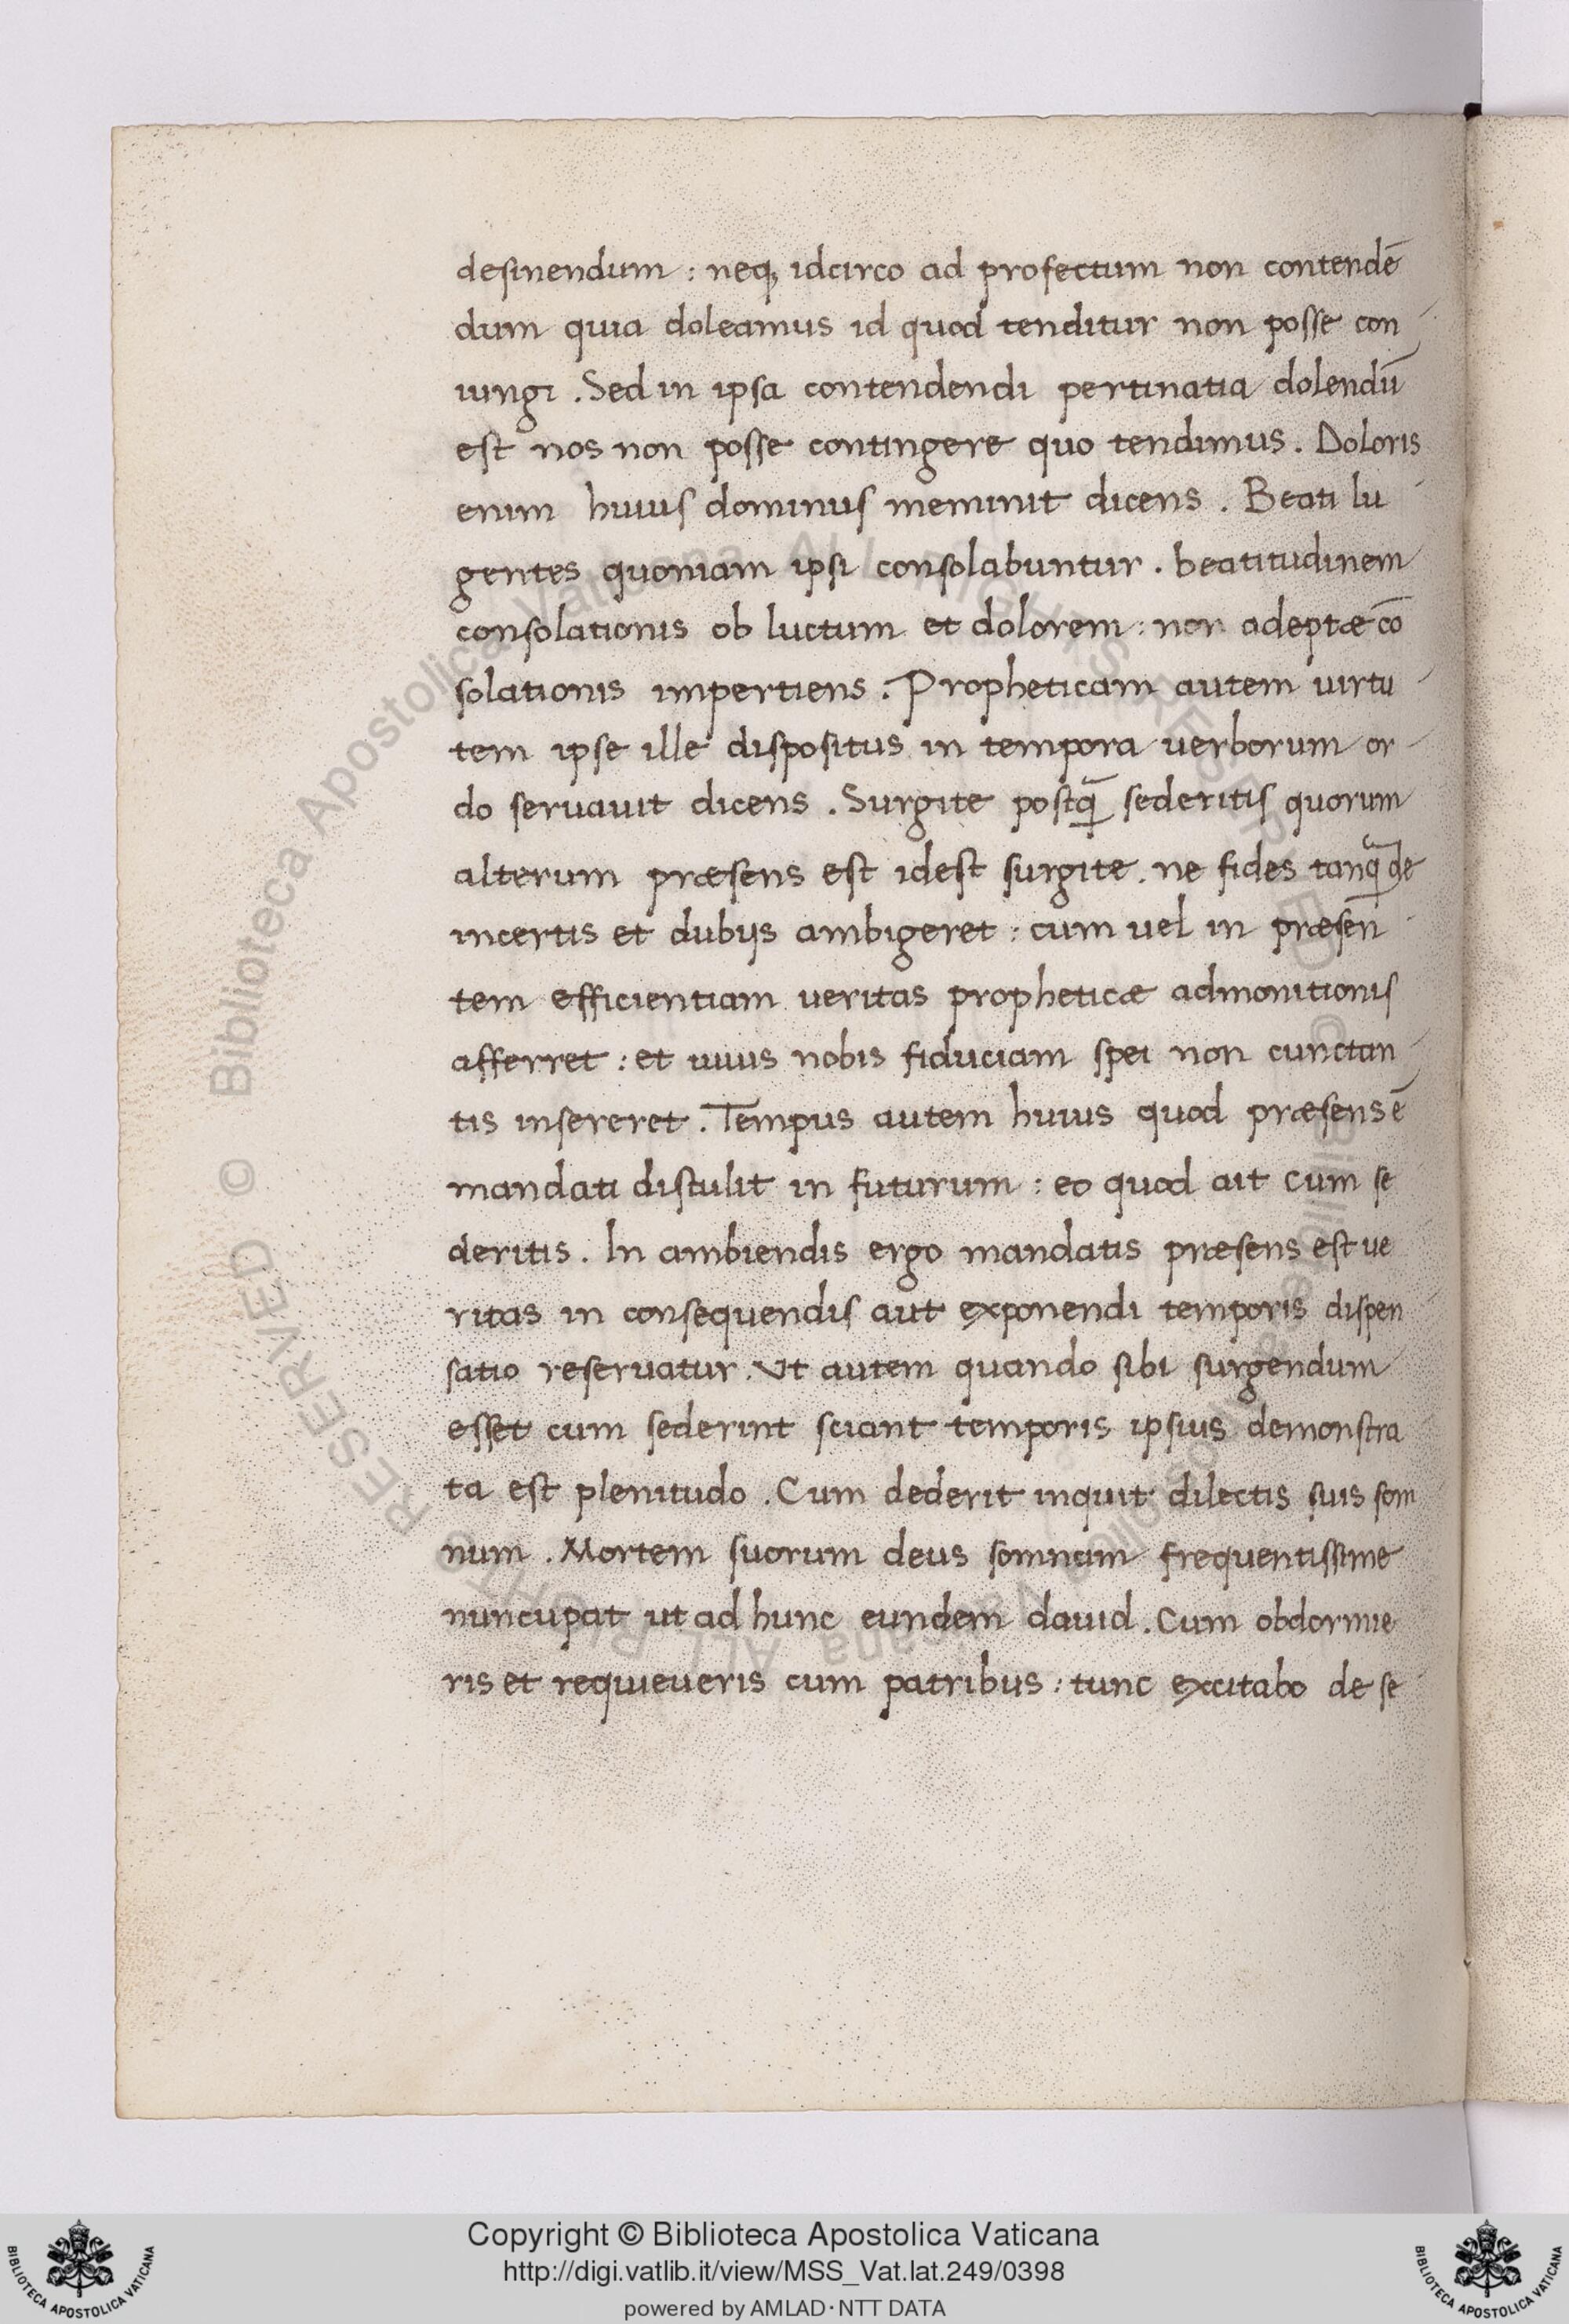 desinendum : neq, idcirco ad profectum non contendē
dum quia doleamus id quod tenditur non posse con
iungi . Sed in ipsa contendendi pertinatia dolendū
est nos non posse contingere quo tendimus . Doloris
enim huius dominus meminit dicens . Beati lu
gentes quoniam ipsi consolabuntur . beatitudinem
consolationis ob luctum et dolorem : non adeptæ cō
solationis impertiens . Propheticam autem uirtu
tem ipse ille dispositus in tempora uerborum or
do seruauit dicens . Surgite postq̄ sederitis quorum
alterum præsens est idest surgite . ne fides tanq̄ de
incertis et dubijs ambigeret : cum uel in præsen
tem efficientiam ueritas propheticæ admonitionis
afferret : et uiuus nobis fiduciam spei non cunctan
tis insereret . Tempus autem huius quod præsens ē
mandati distulit in futurum : eo quod ait cum se
deritis . In ambiendis ergo mandatis præsens est ue
ritas in consequendis aut exponendi temporis dispen
satio reseruatur . Vt autem quando sibi surgendum
esset cum sederint sciant temporis ipsius demonstra
ta est plenitudo . Cum dederit inquit dilectis suis som
num . Mortem suorum deus somnum frequentissime
nuncupat ut ad hunc eundem dauid . Cum obdormie
ris et requieueris cum patribus : tunc excitabo de se
© Biblioteca Apostolica Vaticana ALL RIGHTS RESERVED © Biblioteca Apostolica Vaticana ALL RIGHTS RESERVED
Copyright © Biblioteca Apostolica Vaticana
http://digi.vatlib.it/view/MSS_Vat.lat.249/0398
powered by AMLAD·NTT DATA
BIBLIOTECA APOSTOLICA VATICANA
BIBLIOTECA APOSTOLICA VATICANA